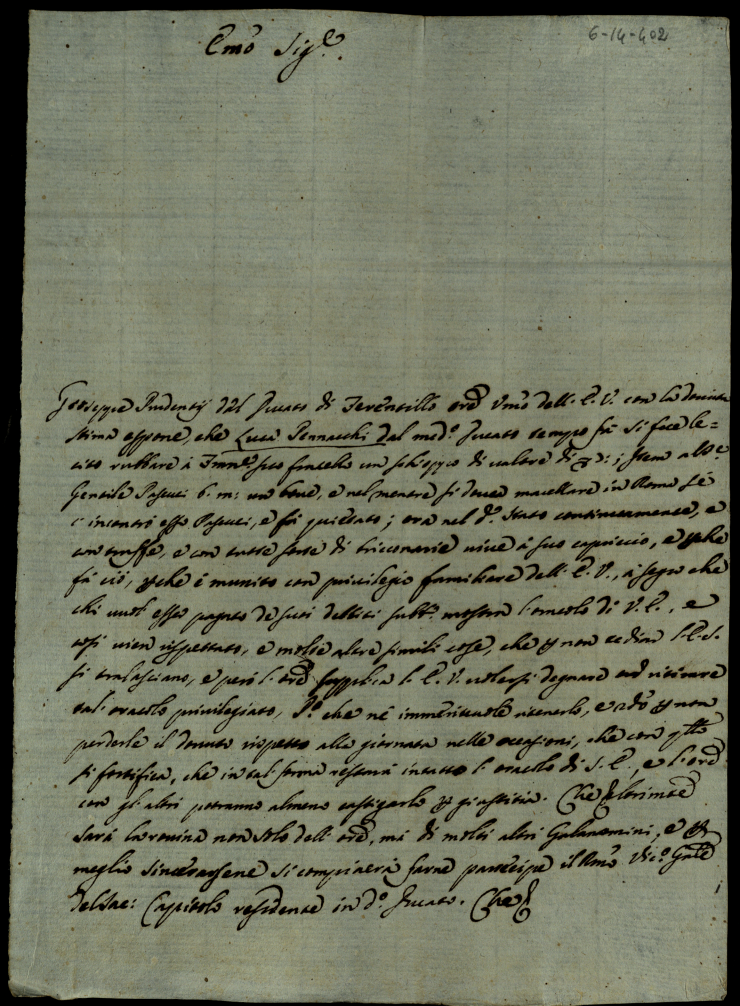 6-14-402
Emo Sigre.
Gioseppe Prudentij dal Ducato di Ferentillo ore Umo dell' E. V. con la dovuta
stima espone, che Luca Pennacchi dal medo. Ducato tempo fà si fece le=
cito rubbare à suo fratello un schioppo di valore di ; Item a
Gentile Pascuci b. m: un bove, e nel mentre si dovea macellare in Roma
c'incontrò esso Pascuci, e fù quietato; ora nel do. Stato continuamente, e
con truffe, e con tutte sorte di bricconarie vive à suo capriccio, e perche
fà ciò, perche è munito con privilegio familiare dell' E. V., à segno che
chi vuol esser pagato de suoi delitti subbo. mostra l'oracolo di V. E., e
così vien rispettato, e molte altre simili cose, che per non tediar l'E. S.
si tralasciano, e però l'ore supplica l'E. V. volersi degnare ritirare
tal' oracolo privilegiato, Po. che nè immeritevole ritenerlo, e 2do per non
perderle il dovuto rispetto alla giornata nelle occasioni, che con
si fortifica, che in tal forma resterà intatto l'oracolo di S. E., e l'ore
con gl'altri potranno almeno castigarlo per giustizia. Che
sarà la rovina non solo dell' ore, mà di molti altri Galanomini, e per
meglio sincerarsene si compiacerà farne partecipe il Rmo Vico. Gnle
del Capitolo residente in do. Ducato. Che